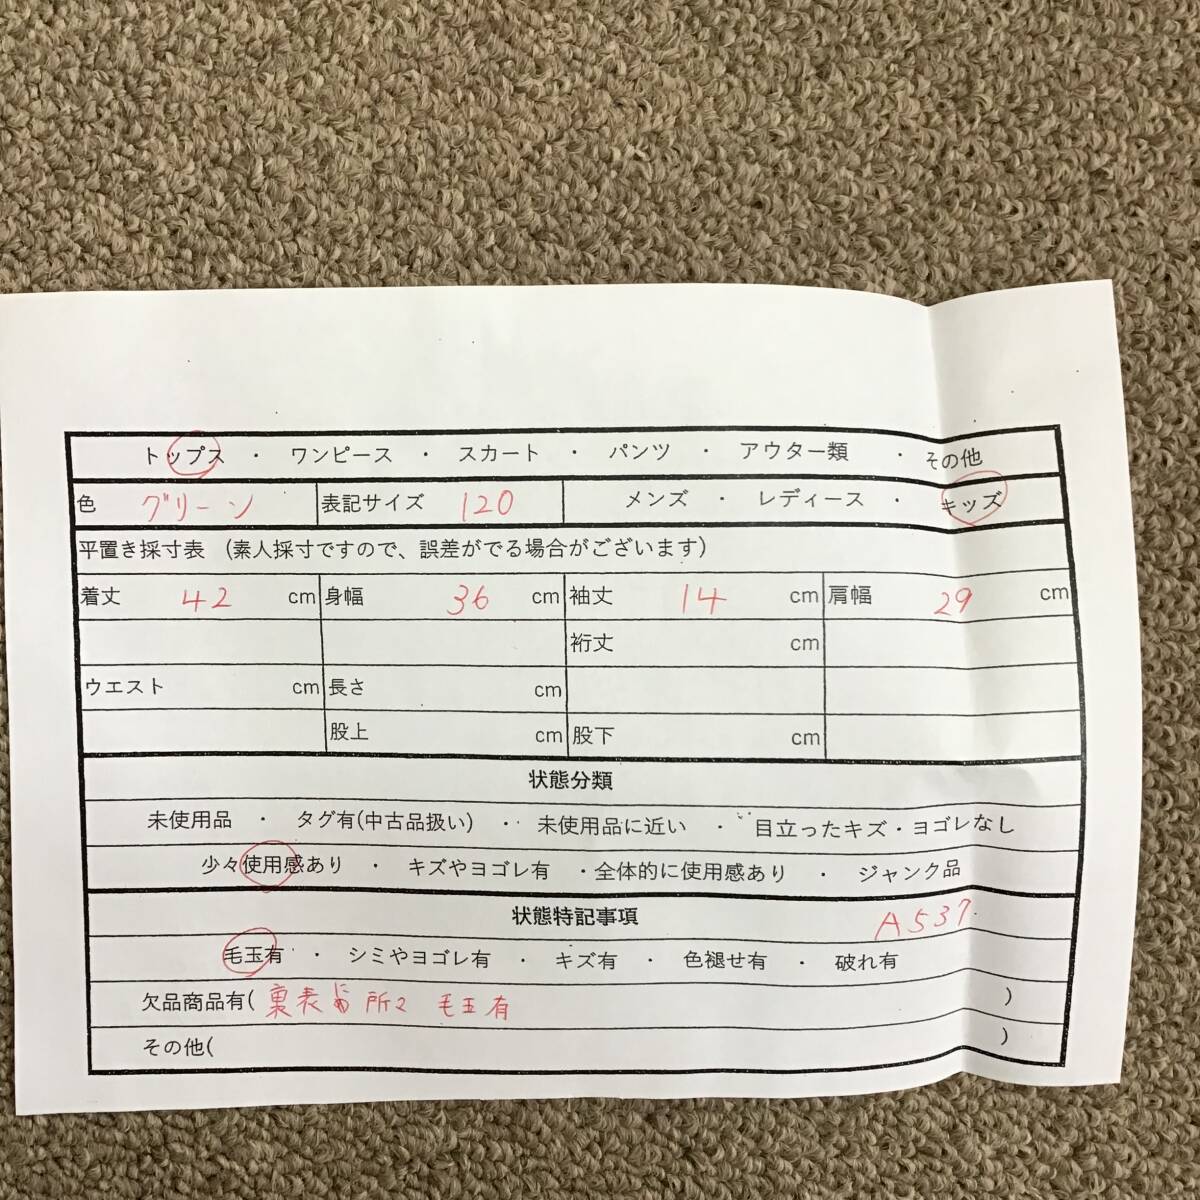 トップス ・ ワンピース ・ スカート ・ パンツ ・ アウター類 ・ その他
色 グリーン 表記サイズ 120 メンズ ・ レディース ・ キッズ
平置き採寸表 (素人採寸ですので、誤差がでる場合がございます)
着丈 42 cm 身幅 36 cm 袖丈 14 cm 肩幅 29 cm
裄丈 cm
ウエスト cm 長さ cm
股上 cm 股下 cm
状態分類
未使用品 ・ タグ有(中古品扱い) ・ 未使用品に近い ・ 目立ったキズ・ヨゴレなし
少々使用感あり ・ キズやヨゴレ有 ・全体的に使用感あり ・ ジャンク品
状態特記事項 A537
毛玉有 ・ シミやヨゴレ有 ・ キズ有 ・ 色褪せ有 ・ 破れ有
欠品商品有( 裏表 所々 毛玉有 )
その他( )